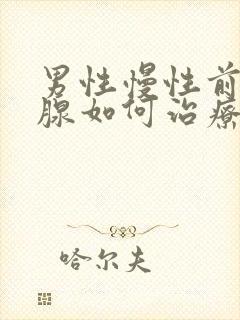 男性慢性前
腺如何治疗
哈尔夫